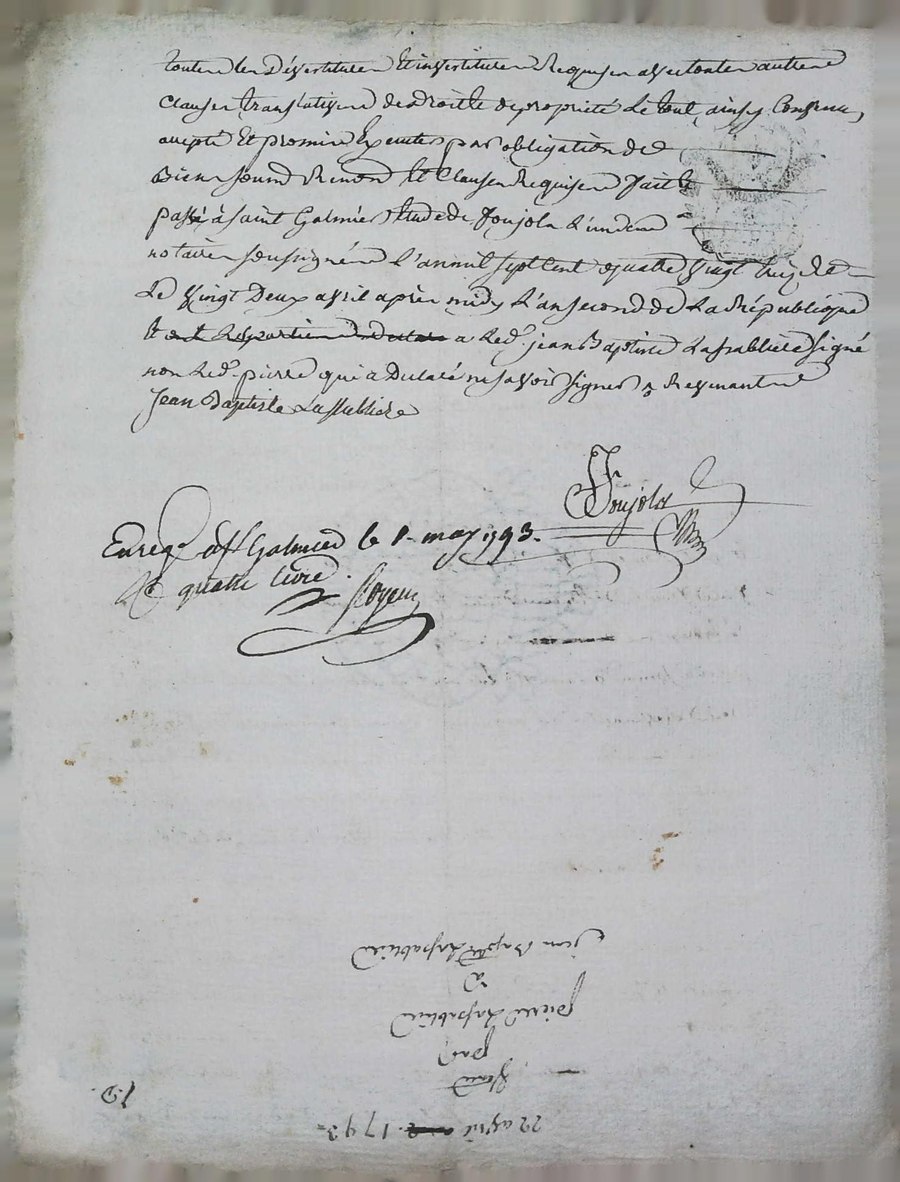 toutes les Dévestitures Et investitures Requises avec toutes autres
clauses translatives des droits de propriété Le tout ainsy Convenu,
accepté Et promis Executer par obligation de
Biens soumis Renon et Clauses Requises fait &
passé à Saint Galmier Etude de Poujola L'un des
notaires soussignés L'an mil sept cent quatre vingt treize
Le Vingt Deux avril après midy L'an second de La République
a Led. jean Baptiste Lafabliere signé
non Led. pierre qui a Declaré ne savoir signer
Jean Baptiste Laffabliere
Poujola
Enreg.e à St Galmier le 1. may 1793.
R quatre livre.
22 avril 1793
par
pierre Lafabliere
à
jean Bapte Lafabliere